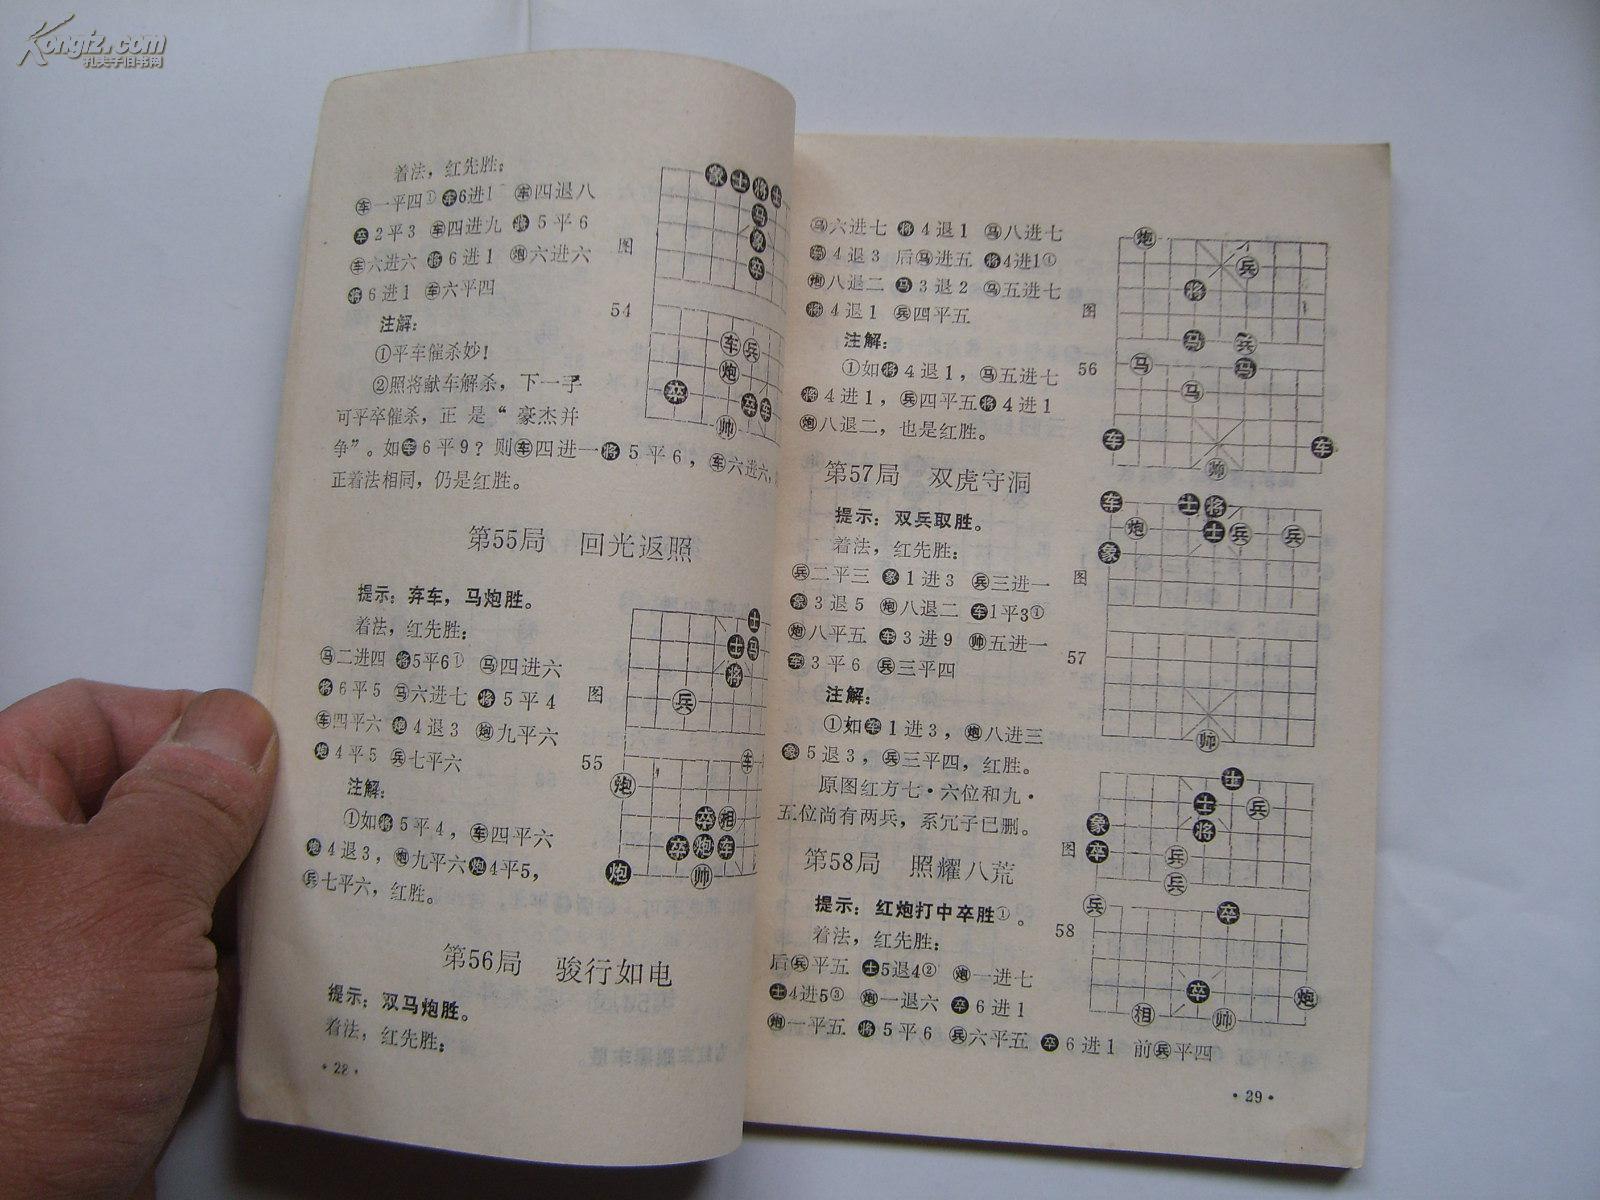 Kongfz.com
孔夫子旧书网
着法，红先胜：
车一平四① 车6进1 车四退八
卒2平3 车四进九 将5平6
车六进六 将6进1 炮六进六
将6进1 车六平四
注解：
①平车催杀妙！
②照将献车解杀，下一手
可平卒催杀，正是“豪杰并
争”。如车6平9？则车四进一将5平6，车六进六，
正着法相同，仍是红胜。
图
54
第55局 回光返照
提示：弃车，马炮胜。
着法，红先胜：
马二进四 将5平6① 马四进六
将6平5 马六进七 将5平4
车四平六 炮4退3 炮九平六
炮4平5 兵七平六
注解：
①如将5平4，车四平六
炮4退3，炮九平六炮4平5，
兵七平六，红胜。
图
55
第56局 骏行如电
提示：双马炮胜。
着法，红先胜：
·28·
马六进七 将4退1 马八进七
车4退3 后马进五 将4进1①
炮八退二 马3退2 马五进七
将4退1 兵四平五
注解：
①如将4退1，马五进七
将4进1，兵四平五将4进1
炮八退二，也是红胜。
图
56
第57局 双虎守洞
提示：双兵取胜。
着法，红先胜：
兵二平三 象1进3 兵三进一
象3退5 炮八退二 车1平3①
炮八平五 车3进9 帅五进一
车3平6 兵三平四
注解：
①如车1进3，炮八进三
象5退3，兵三平四，红胜。
原图红方七·六位和九·
五位尚有两兵，系冗子已删。
图
57
第58局 照耀八荒
提示：红炮打中卒胜①。
着法，红先胜：
后兵平五 士5退4② 炮一进七
士4进5③ 炮一退六 卒6进1
炮一平五 将5平6 兵六平五 卒6进1 前兵平四
图
58
·29·